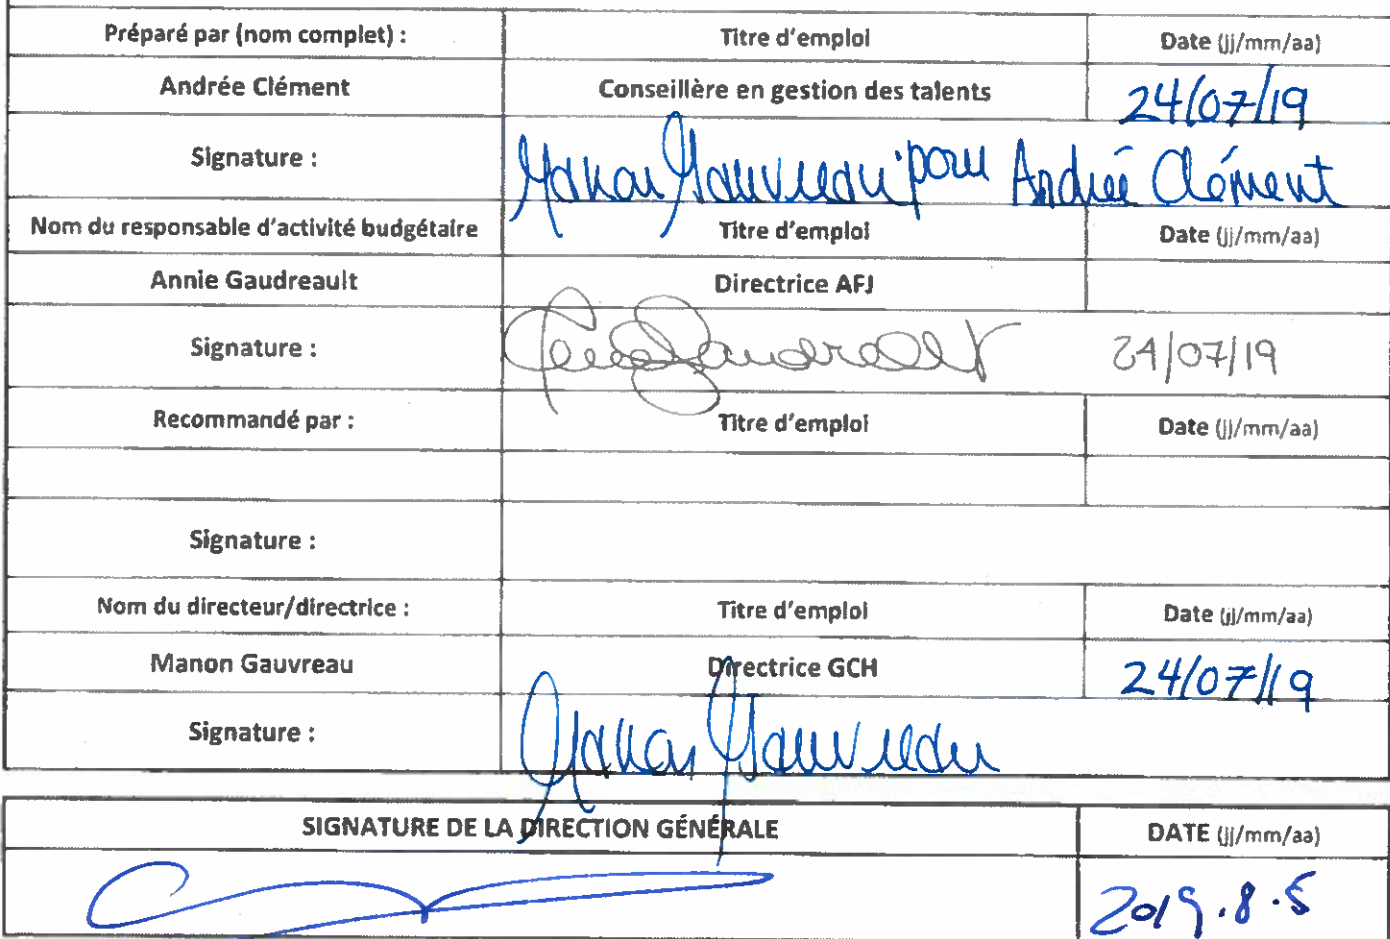 Préparé par (nom complet) : Titre d'emploi Date (jj/mm/aa)
Andrée Clément Conseillère en gestion des talents 24/07/19
Signature : Manon Gauvreau pour Andrée Clément
Nom du responsable d'activité budgétaire Titre d'emploi Date (jj/mm/aa)
Annie Gaudreault Directrice AFJ
Signature : Annie Gaudreault 24/07/19
Recommandé par : Titre d'emploi Date (jj/mm/aa)
Signature :
Nom du directeur/directrice : Titre d'emploi Date (jj/mm/aa)
Manon Gauvreau Directrice GCH 24/07/19
Signature : Manon Gauvreau
SIGNATURE DE LA DIRECTION GÉNÉRALE DATE (jj/mm/aa)
2019.8.5